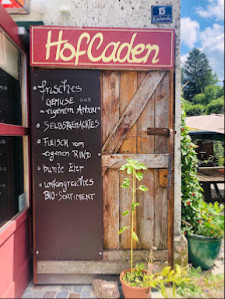 HofLaden
frisches
GEMÜSE aus
eigenem Anbau
SELBSTGEMACHTES
FLEISCH vom
eigenen RIND
bunte Eier
umfangreiches
BIO-SORTIMENT